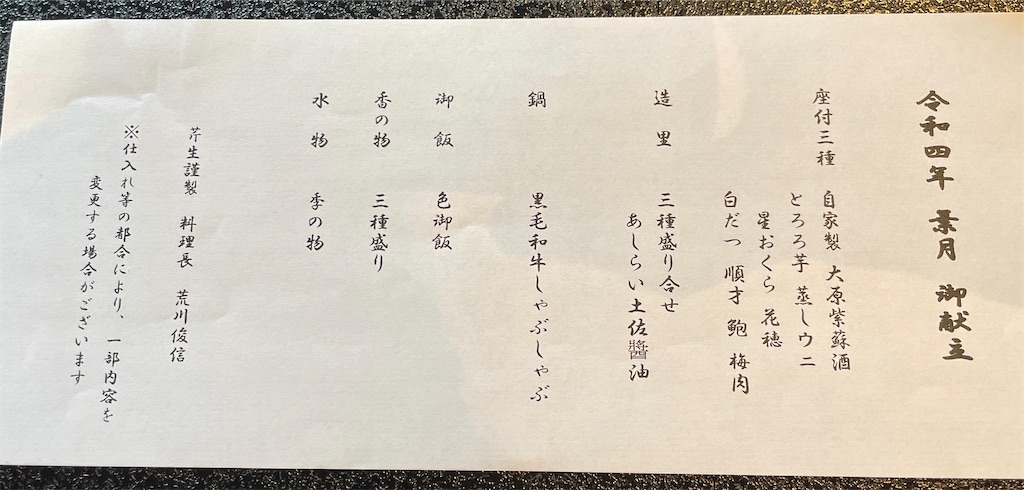 令和四年 葉月 御献立
座付三種 自家製 大原紫蘇酒
とろろ芋 蒸しウニ
星おくら 花穂
白だつ 順才 鮑 梅肉
造里 三種盛り合せ
あしらい 土佐醬油
鍋 黒毛和牛しゃぶしゃぶ
御飯 色御飯
香の物 三種盛り
水物 季の物
芹生謹製 料理長 荒川俊信
※仕入れ等の都合により、一部内容を
変更する場合がございます